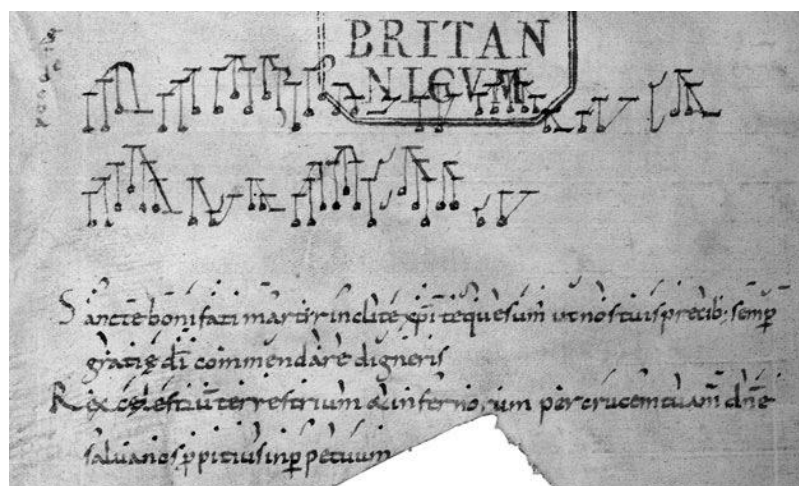 BRITAN
NICVM
Sancte bonifati martir inclite xp̄i te quesum̄ ut nos tuis precib; semp̄
gratię dī commendare digneris
Rex cęlestiū terrestrium & infernorum per crucem tuam dn̄e
salua nos ꝓpitius in ꝑpetuum